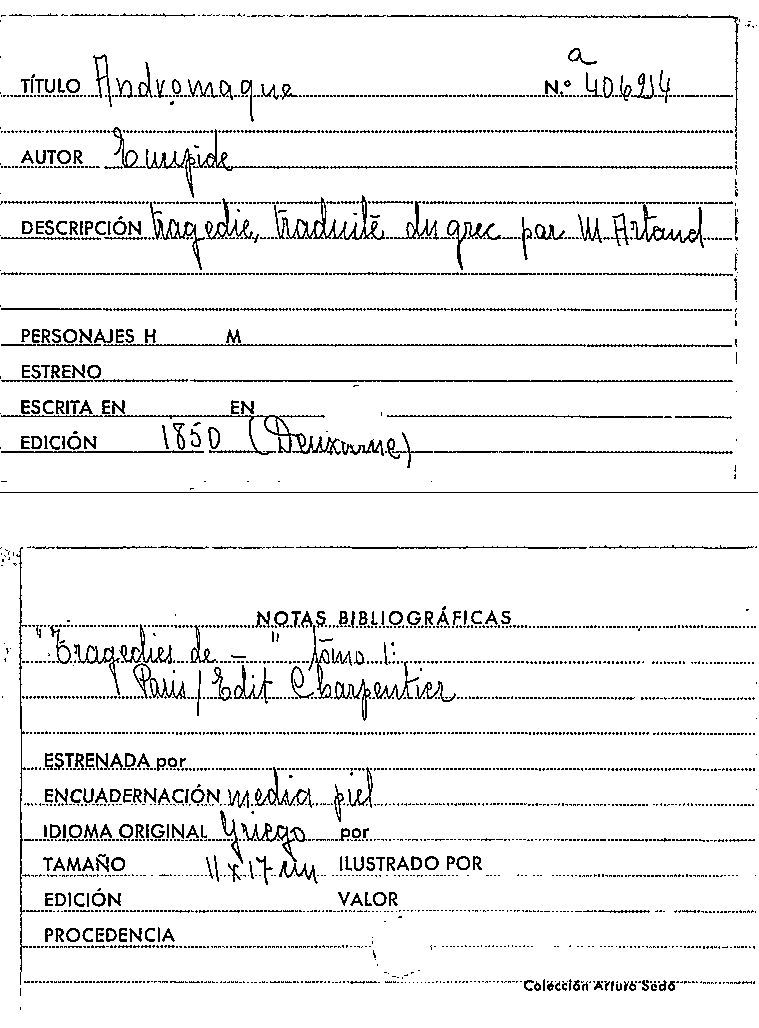 a
TÍTULO Andromaque N.º 406214
AUTOR Euripide
DESCRIPCIÓN tragedie, traduité du grec par M Artaud
PERSONAJES H M
ESTRENO
ESCRITA EN EN
EDICIÓN 1850 (Deuxieme)
NOTAS BIBLIOGRÁFICAS
"Tragedies de — " tomo 1:
Paris / Edit Charpentier
ESTRENADA por
ENCUADERNACIÓN media piel
IDIOMA ORIGINAL Griego por
TAMAÑO 11 x 17 cm ILUSTRADO POR
EDICIÓN VALOR
PROCEDENCIA
Colección Arturo Sedó